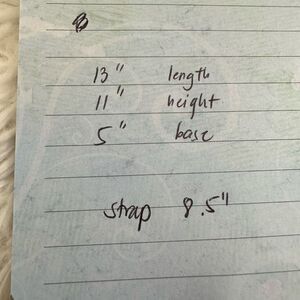 13" length
11" height
5" base
strap 8.5"